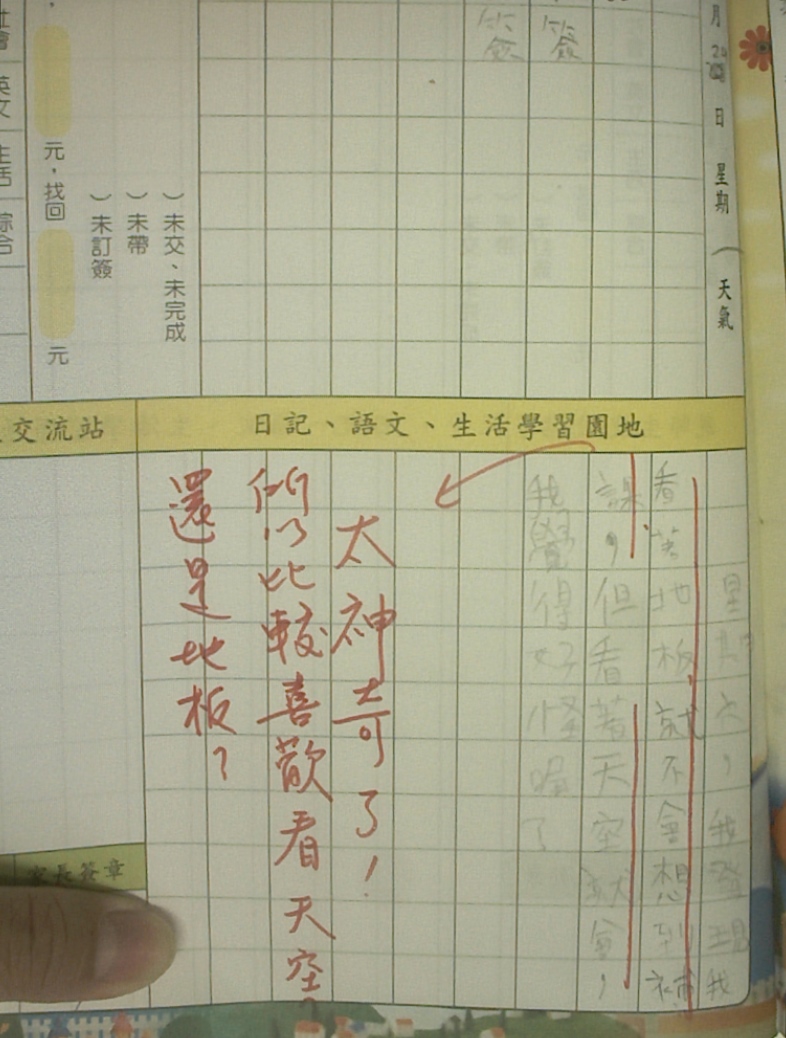 月24日 星期（ 天氣
簽
簽
）未交、未完成
）未帶
）未訂簽
元，找回 元
英文 生活 綜合
日記、語文、生活學習園地
交流站
星期六，我發現我
看著地板就不會想到補
課，但看著天空就會，
我覺得好怪喔了
太神奇了！
所以比較喜歡看天空
還是地板？
家長簽章